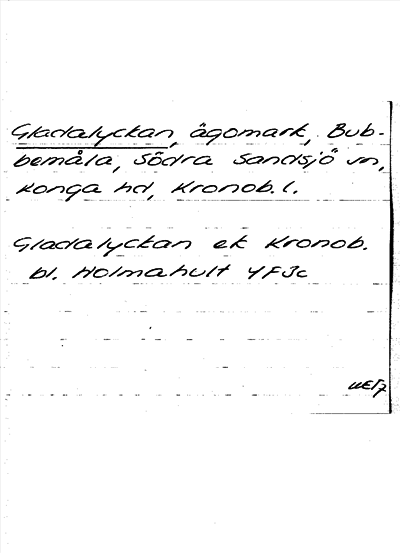 Gladalyckan, ägomark, Bub-
bemåla, Södra Sandsjö sn,
Konga hd, Kronob. l.
Gladalyckan ek Kronob.
bl. Holmahult 4F3c